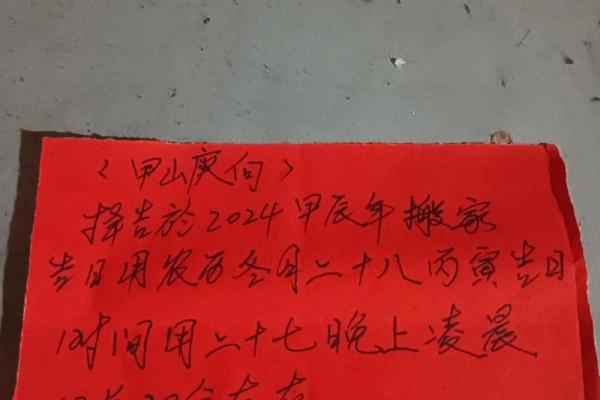 〈甲山庚向〉
择吉於2024甲辰年搬家
吉日用农历冬月二十八丙寅吉日
时间用二十七晚上凌晨